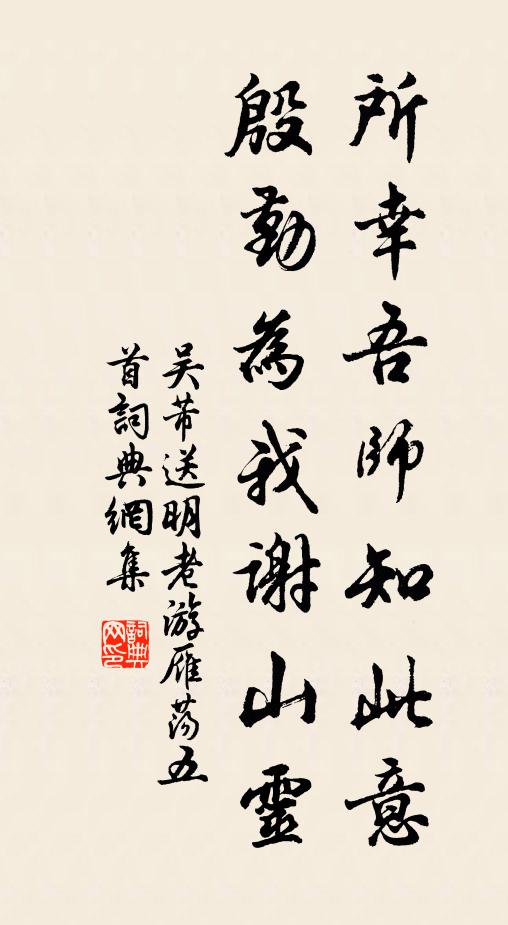 所幸吾師知此意
殷勤為我謝山靈
吴芾送明老游雁蕩五
首詞典網集
詞典
网印